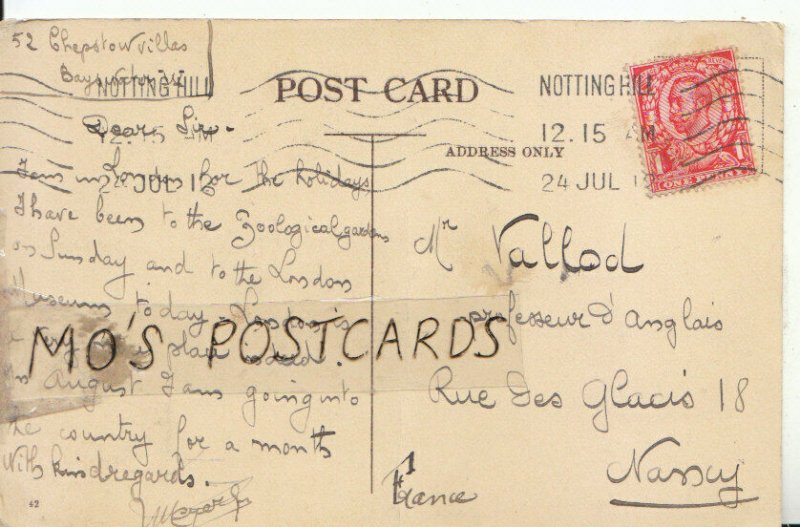 52 Chepstow Villas
Bayswater W
NOTTING HILL
POST CARD
NOTTING HILL
12.15 AM
24 JUL 12
ADDRESS ONLY
ONE PENNY
Dear Sir -
I am in London for the holidays
I have been to the Zoological gardens
on Sunday and to the London
Museum today - London is
a very
In August I am going into
the country for a month
With kind regards.
Mr Vallod
professeur d'Anglais
Rue Des Glacis 18
Nancy
France
MO'S POSTCARDS
42